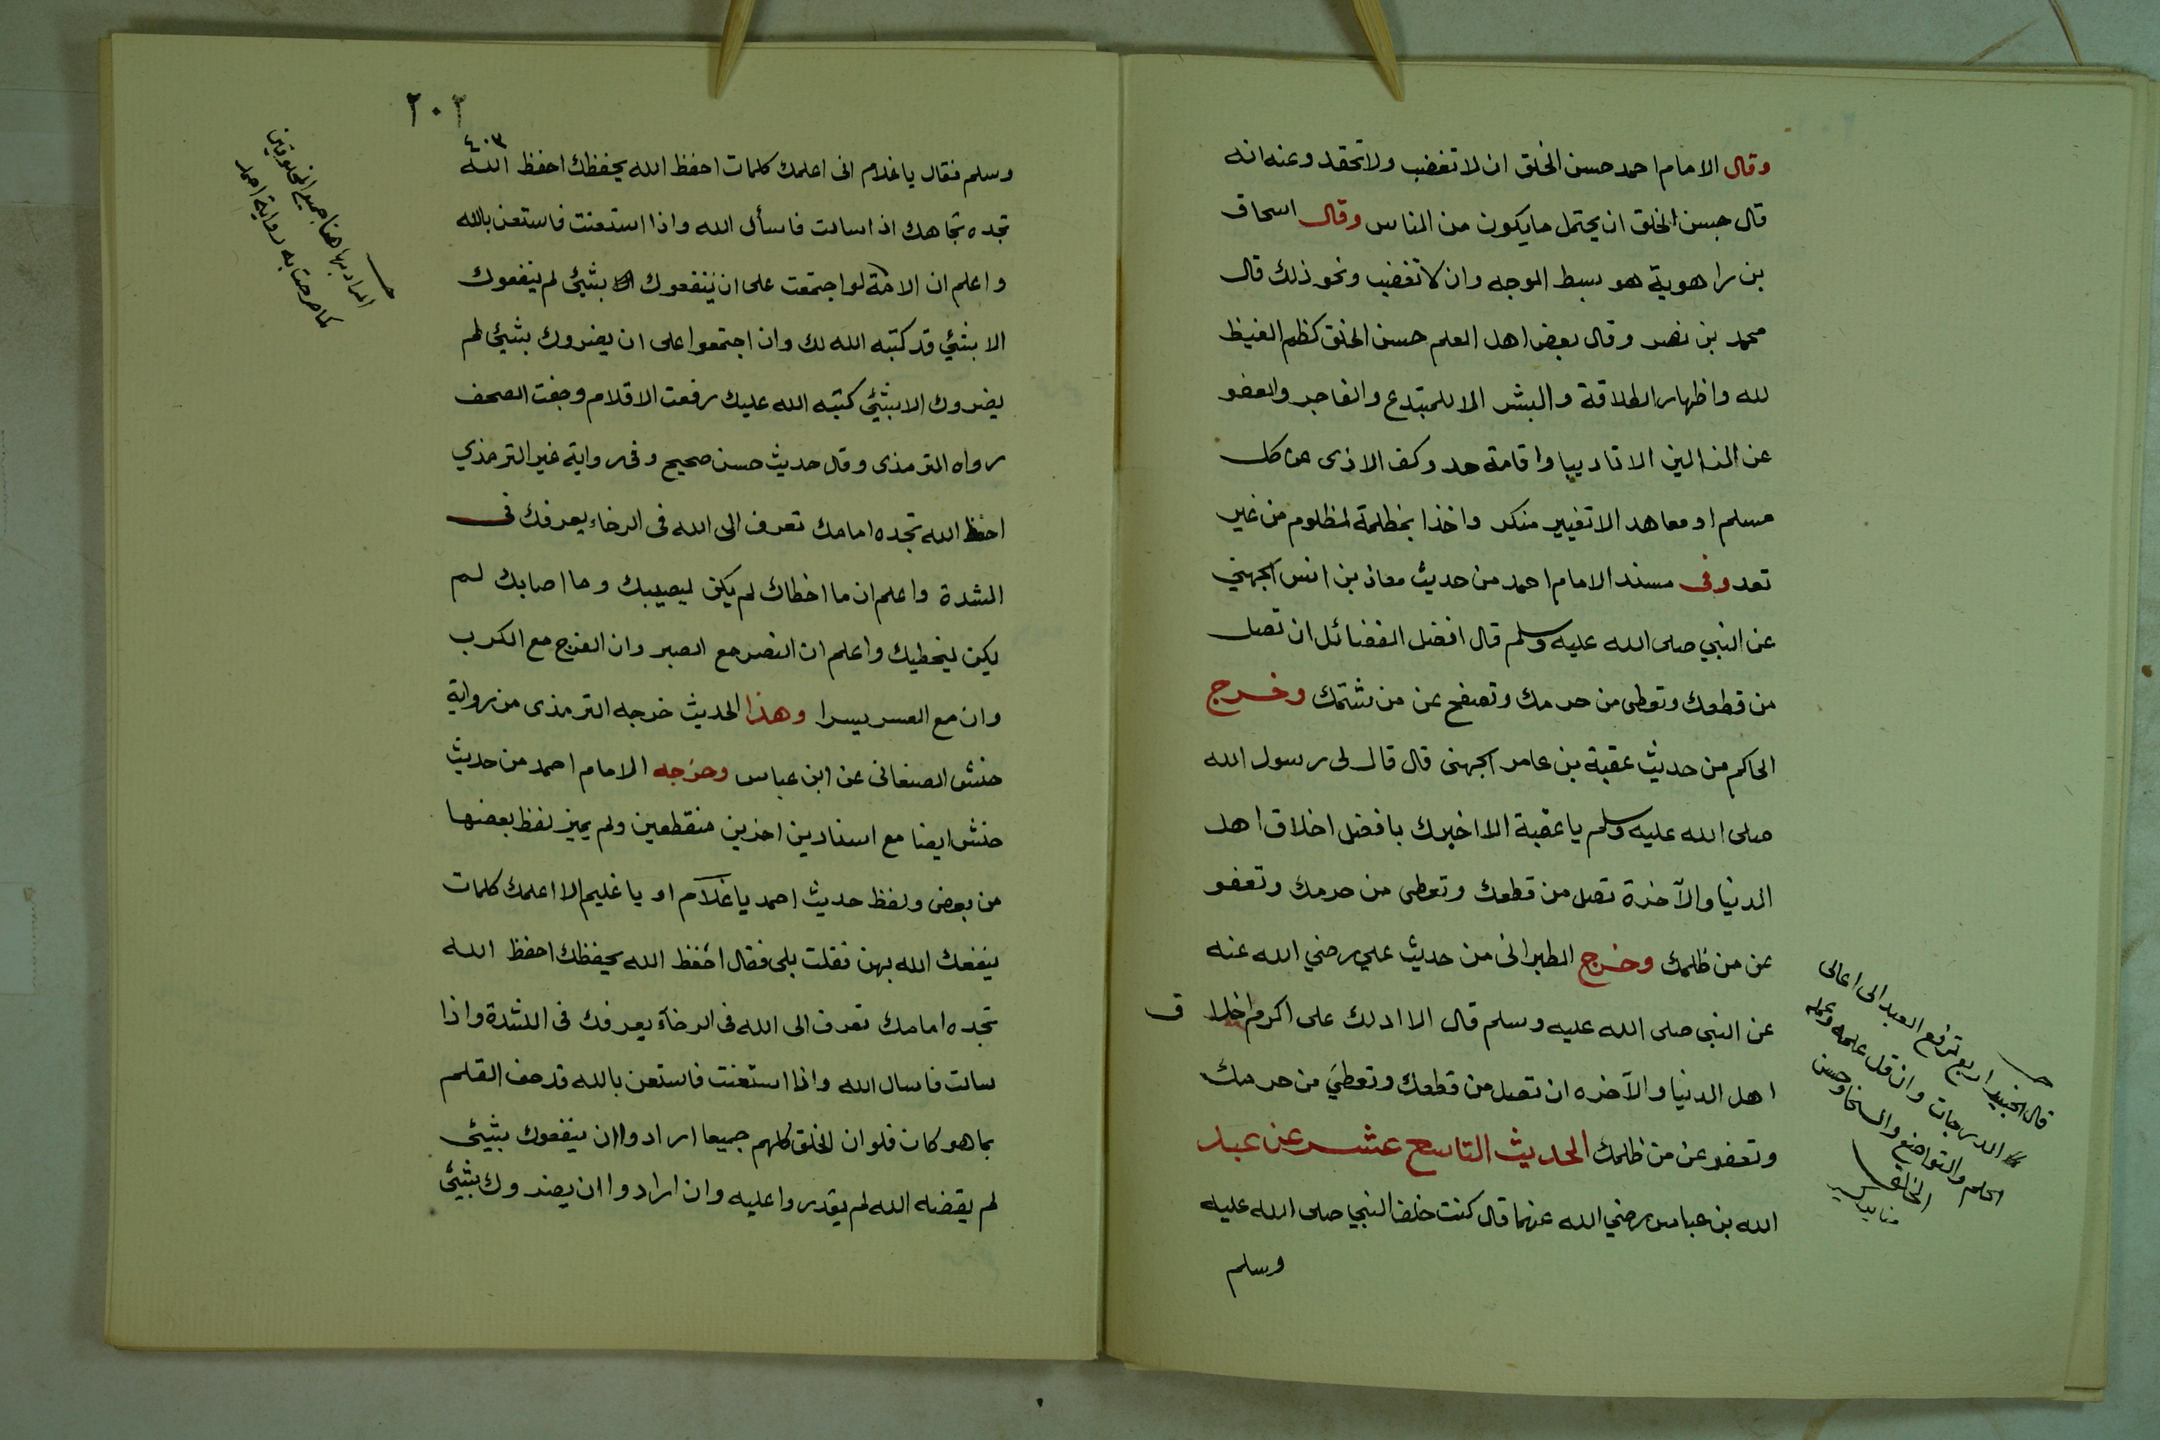 وقال الامام احمد حسن الخلق ان لا تغضب ولا تحقد وعنه انه
قال حسن الخلق ان يحتمل ما يكون من الناس وقال اسحاق
بن راهوية هو بسط الوجه وان لا تغضب ونحو ذلك قال
محمد بن نصر وقال بعض اهل العلم حسن الخلق كظم الغيظ
لله واظهار الطلاقة والبشر الا للمبتدع والفاجر والعفو
عن الزالين الا تاديبا واقامة حد وكف الاذى عن كل
مسلم او معاهد الا تغيير منكر واخذا بمظلمة لمظلوم من غير
تعد وفى مسند الامام احمد من حديث معاذ بن انس الجهني
عن النبي صلى الله عليه وسلم قال افضل الفضائل ان تصل
من قطعك وتعطى من حرمك وتصفح عن من شتمك وخرج
الحاكم من حديث عقبة بن عامر الجهنى قال قال لى رسول الله
صلى الله عليه وسلم يا عقبة الا اخبرك بافضل اخلاق اهل
الدنيا والآخرة تصل من قطعك وتعطى من حرمك وتعفو
عن من ظلمك وخرج الطبرانى من حديث علي رضي الله عنه
عن النبى صلى الله عليه وسلم قال الا ادلك على اكرم اخلا ق
اهل الدنيا والآخره ان تصل من قطعك وتعطي من حرمك
وتعفو عن من ظلمك الحديث التاسع عشر عن عبد
الله بن عباس رضي الله عنهما قال كنت خلف النبي صلى الله عليه
وسلم
قال الجنيد اربع ترفع العبد الى اعالى
الدرجات وان قل علمه وعمله
الحلم والتواضع والسخا وحسن
الخلق
٢٠٢
٤٠٣
وسلم فقال يا غلام انى اعلمك كلمات احفظ الله يحفظك احفظ الله
تجده تجاهك اذا سالت فاسأل الله واذا استعنت فاستعن بالله
واعلم ان الامة لو اجتمعت على ان ينفعوك بشيئ لم ينفعوك
الا بشئ قد كتبه الله لك وان اجتمعوا على ان يضروك بشيئ لم
يضروك الا بشيئ كتبه الله عليك رفعت الاقلام وجفت الصحف
رواه الترمذى وقال حديث حسن صحيح وفى رواية غير الترمذي
احفظ الله تجده امامك تعرف الى الله فى الرخاء يعرفك فى
الشدة واعلم ان ما اخطاك لم يكن ليصيبك وما اصابك لم
يكن ليخطيك واعلم ان النصر مع الصبر وان الفرج مع الكرب
وان مع العسر يسرا وهذا الحديث خرجه الترمذى من رواية
حنش الصنعانى عن ابن عباس وخرجه الامام احمد من حديث
حنش ايضا مع اسنادين اخرين منقطعين ولم يميز لفظ بعضها
من بعض ولفظ حديث احمد يا غلام او يا غليم الا اعلمك كلمات
ينفعك الله بهن فقلت بلى فقال احفظ الله يحفظك احفظ الله
تجده امامك تعرف الى الله فى الرخآء يعرفك فى الشدة واذا
سالت فاسال الله واذا استعنت فاستعن بالله قد جف القلم
بما هو كان فلو ان الخلق كلهم جميعا ارادوا ان ينفعوك بشيئ
لم يقضه الله لم يقدروا عليه وان ارادوا ان يضروك بشيئ
المراد بها هنا جميع المخلوقين
كما صرحت به رواية احمد